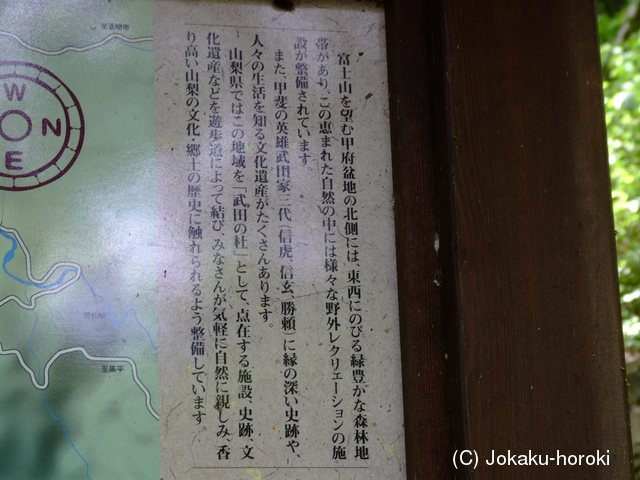 富士山を望む甲府盆地の北側には、東西にのびる緑豊かな森林地
帯があり、この恵まれた自然の中には様々な野外レクリエーションの施
設が整備されています。
また、甲斐の英雄武田家三代（信虎、信玄、勝頼）に縁の深い史跡や、
人々の生活を知る文化遺産がたくさんあります。
山梨県ではこの地域を「武田の杜」として、点在する施設、史跡、文
化遺産などを遊歩道によって結び、みなさんが気軽に自然に親しみ、香
り高い山梨の文化・郷土の歴史に触れられるよう整備しています。
W
N
E
至黒平
(C) Jokaku-horoki